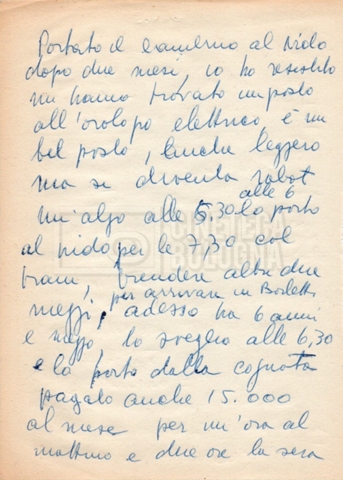 Portato il bambino al Nido
dopo due mesi, io ho resistito
mi hanno trovato un posto
all'orologio elettrico è un
bel posto, anche leggero
ma si diventa robot
alle 6
mi algo alle 5,30 lo porto
al nido per le 7,30 col
tram, prendere altri due
per arrivare in Borletti
mezzi, adesso ha 6 anni
e mezzo lo sveglio alle 6,30
e lo porto dalla cognata
pagato anche 15.000
al mese per un'ora al
mattino e due ore la sera
CINETECA
BOLOGNA